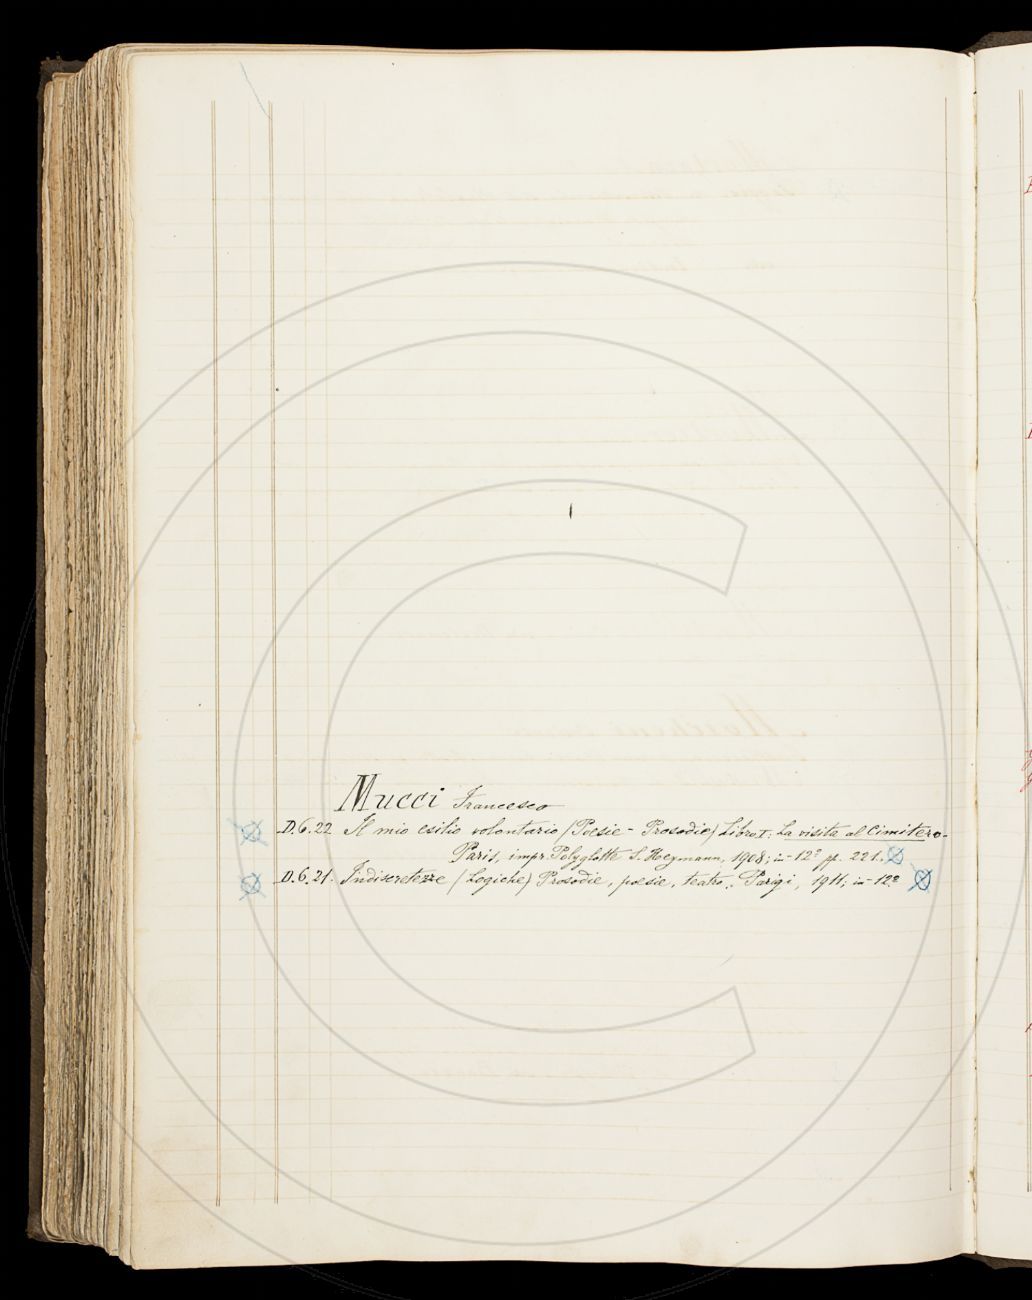 Mucci Francesco
D.6.22 Il mio esilio volontario (Poesie - Prosodie) Libro I. La visita al Cimitero.
Paris, impr. Polyglotte S. Heymann, 1908; in-12º pp. 221.
D.6.21. Indiscretezze (Logiche) Prosodie, poesie, teatro. Parigi, 1911; in-12º